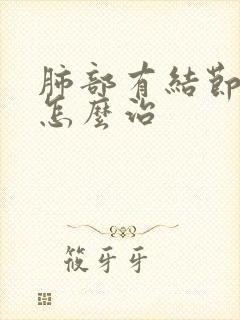 肺部有結節
怎麼治
筱牙牙